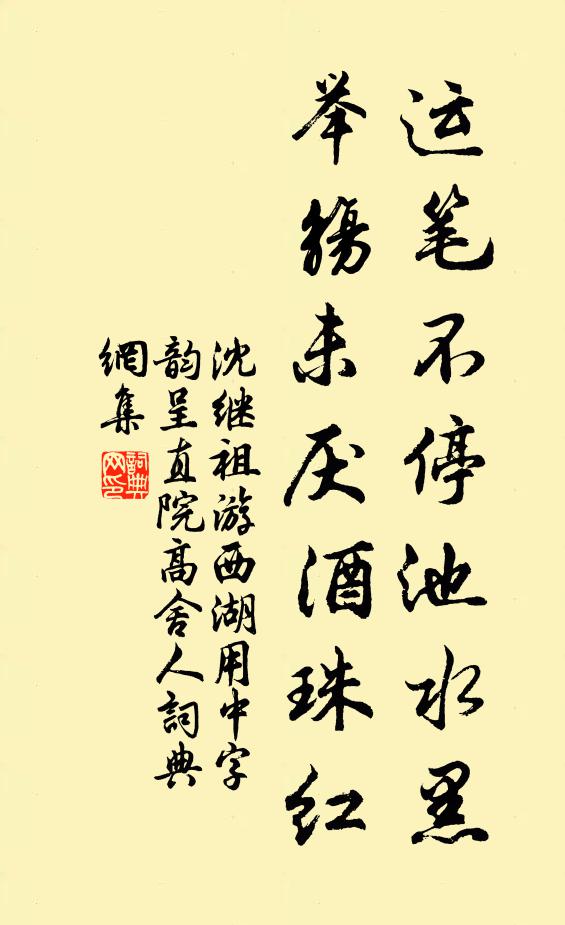 运笔不停池水黑
举觞未厌酒珠红
沈继祖游西湖用中字
韵呈直院高舍人詞典
網集
詞典网印